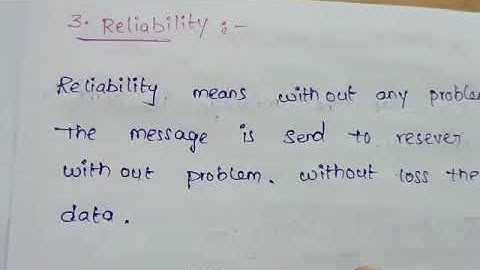 3. Reliability :-
Reliability means with out any proble
The message is send to resever
with out problem. without loss the
data.